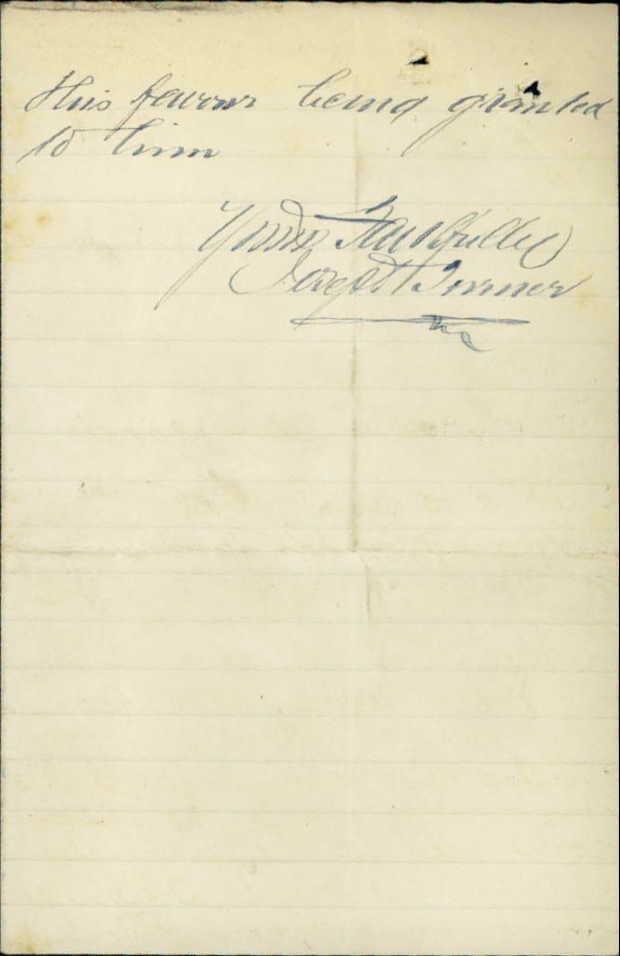 this favour being granted
to him
Yours Faithfully
Joseph Turner